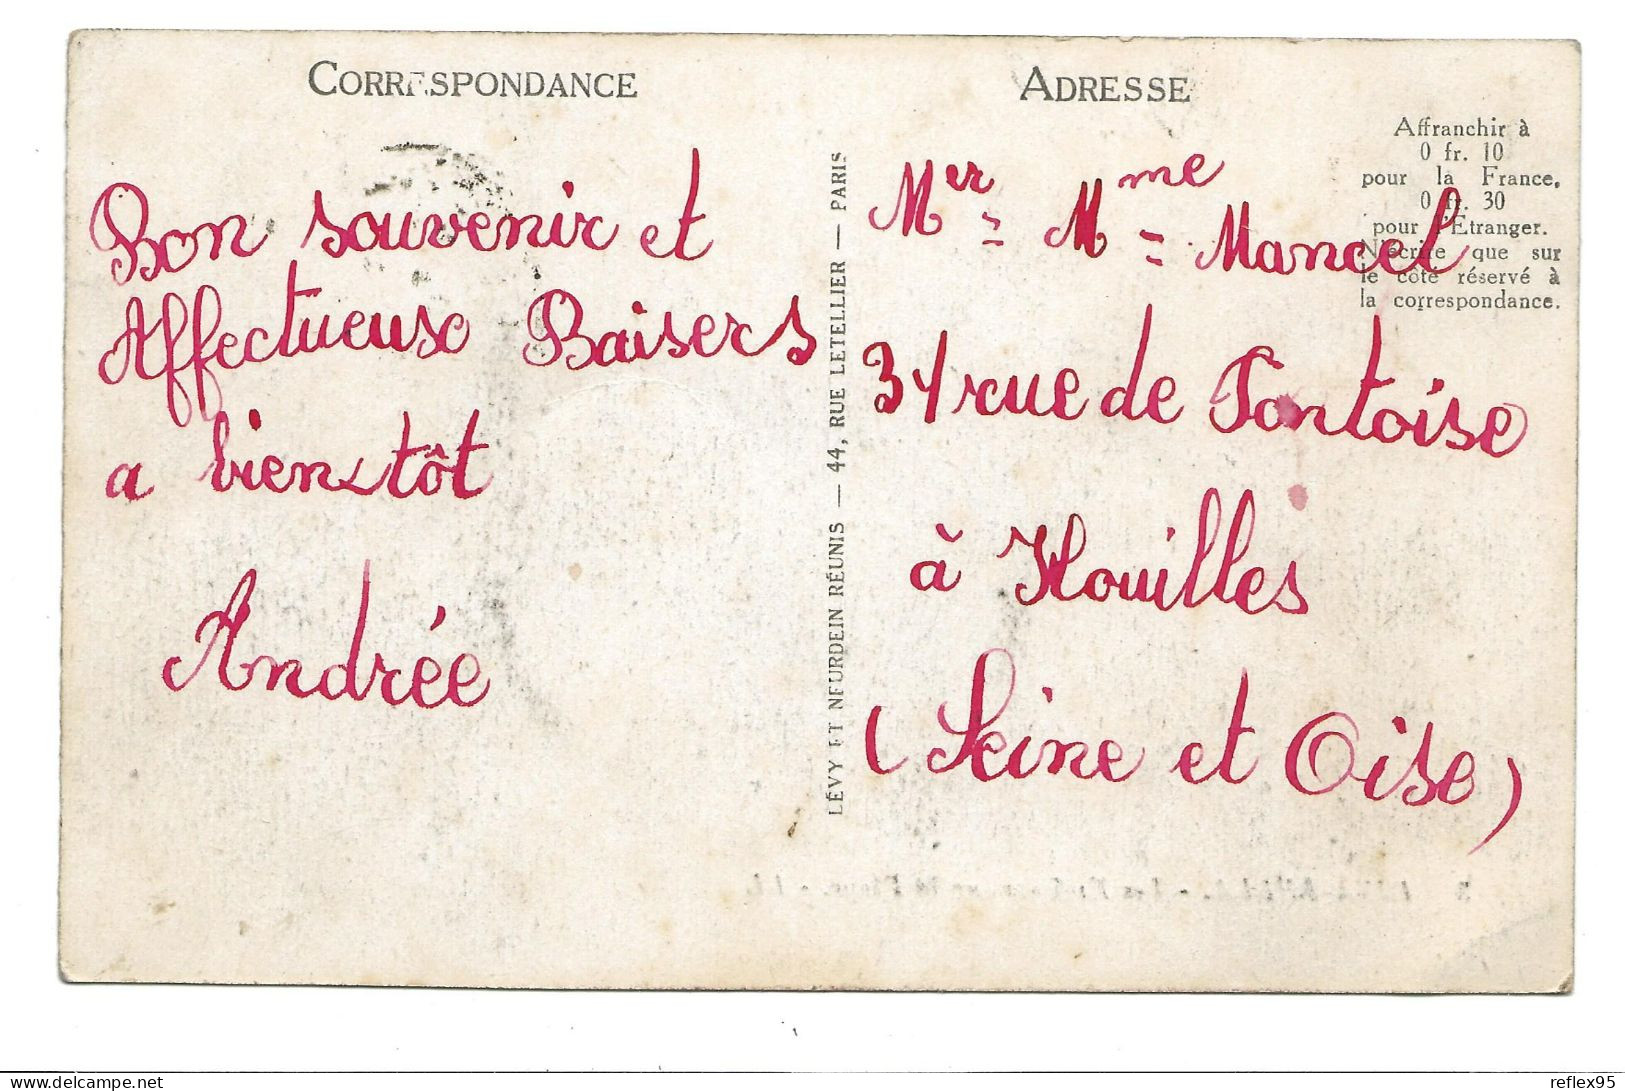 CORRESPONDANCE
Bon souvenir et
Affectueuse Baisers
a bientôt
Andrée
LÉVY ET NEURDEIN RÉUNIS — 44, RUE LETELLIER — PARIS
ADRESSE
Affranchir à
0 fr. 10
pour la France,
0 fr. 30
pour l'Etranger.
N'écrire que sur
le côté réservé à
la correspondance.
Mer = Mme = Mancel
rue de Pontoise
à Houilles
(Seine et Oise)
reflex95